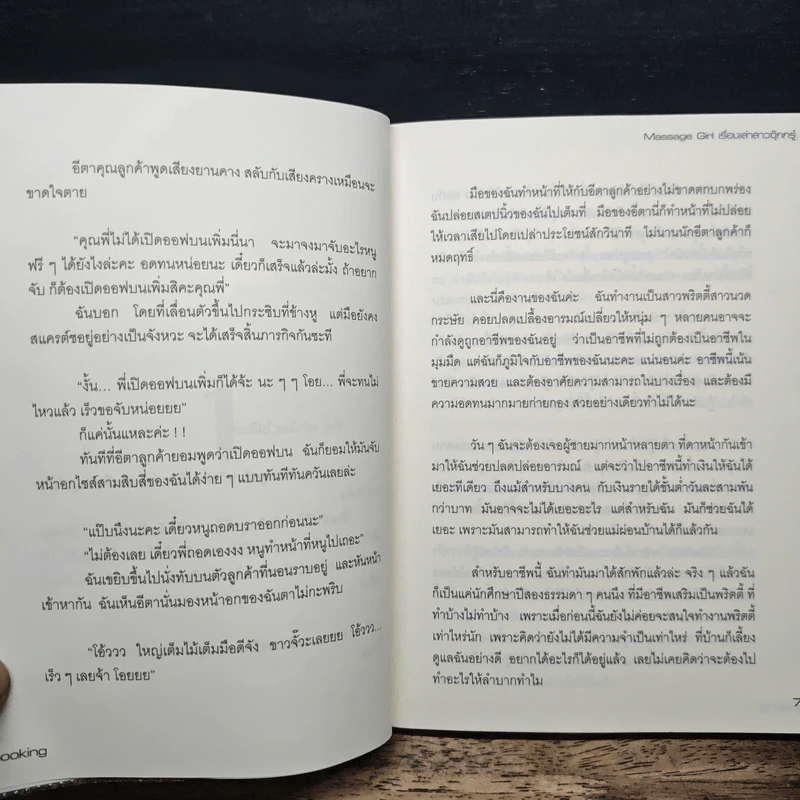 อีตาคุณลูกค้าพูดเสียงยานคาง สลับกับเสียงครางเหมือนจะ
ขาดใจตาย
“คุณพี่ไม่ได้เปิดออฟบนเพิ่มนี่นา จะมาจงมาจับอะไรหนู
ฟรี ๆ ได้ยังไงล่ะคะ อดทนหน่อยนะ เดี๋ยวก็เสร็จแล้วล่ะมั้ง ถ้าอยาก
จับ ก็ต้องเปิดออฟบนเพิ่มสิคะคุณพี่”
ฉันบอก โดยที่เลื่อนตัวขึ้นไปกระซิบที่ข้างหู แต่มือยังคง
สแครตช์ซอยู่อย่างเป็นจังหวะ จะได้เสร็จสิ้นภารกิจกันซะที
“งั้น... พี่เปิดออฟบนเพิ่มก็ได้จ้ะ นะ ๆ ๆ โอย... พี่จะทนไม่
ไหวแล้ว เร็วขอจับหน่อยยย”
ก็แค่นั้นแหละค่ะ ! !
ทันทีที่อีตาลูกค้ายอมพูดว่าเปิดออฟบน ฉันก็ยอมให้มันจับ
หน้าอกไซส์สามสิบสี่ของฉันได้ง่าย ๆ แบบทันทีทันควันเลยล่ะ
“แป๊บนึงนะคะ เดี๋ยวหนูถอดบราออกก่อนนะ”
“ไม่ต้องเลย เดี๋ยวพี่ถอดเองงง หนูทำหน้าที่หนูไปเถอะ”
ฉันเขยิบขึ้นไปนั่งทับบนตัวลูกค้าที่นอนราบอยู่ และหันหน้า
เข้าหากัน ฉันเห็นอีตานั่นมองหน้าอกของฉันตาไม่กะพริบ
“โอ้ววว ใหญ่เต็มไม้เต็มมือดีจัง ขาวจั๊วะเลยยย โอ้ววว...
เร็ว ๆ เลยจ้า โอยยย”
ooking
Massage Girl เรื่องเล่าสาวตุ๊กทรู้
มือของฉันทำหน้าที่ให้กับอีตาลูกค้าอย่างไม่ขาดตกบกพร่อง
ฉันปล่อยสเตปนิ้วของฉันไปเต็มที่ มือของอีตานี่ก็ทำหน้าที่ไม่ปล่อย
ให้เวลาเสียไปโดยเปล่าประโยชน์สักวินาที ไม่นานนักอีตาลูกค้าก็
หมดฤทธิ์
และนี่คืองานของฉันค่ะ ฉันทำงานเป็นสาวพริตตี้สาวนวด
กระษัย คอยปลดเปลื้องอารมณ์เปลี่ยวให้หนุ่ม ๆ หลายคนอาจจะ
กำลังดูถูกอาชีพของฉันอยู่ ว่าเป็นอาชีพที่ไม่ถูกต้องเป็นอาชีพใน
มุมมืด แต่ฉันก็ภูมิใจกับอาชีพของฉันนะคะ แน่นอนค่ะ อาชีพนี้เน้น
ขายความสวย และต้องอาศัยความสามารถในบางเรื่อง และต้องมี
ความอดทนมากมายก่ายกอง สวยอย่างเดียวทำไม่ได้นะ
วัน ๆ ฉันจะต้องเจอผู้ชายมากหน้าหลายตา ที่ดาหน้ากันเข้า
มาให้ฉันช่วยปลดปล่อยอารมณ์ แต่จะว่าไปอาชีพนี้ทำเงินให้ฉันได้
เยอะทีเดียว ถึงแม้สำหรับบางคน กับเงินรายได้ขั้นต่ำวันละสามพัน
กว่าบาท มันอาจจะไม่ได้เยอะอะไร แต่สำหรับฉัน มันก็ช่วยฉันได้
เยอะ เพราะมันสามารถทำให้ฉันช่วยแม่ผ่อนบ้านได้ก็แล้วกัน
สำหรับอาชีพนี้ ฉันทำมันมาได้สักพักแล้วล่ะ จริง ๆ แล้วฉัน
ก็เป็นแค่นักศึกษาปีสองธรรมดา ๆ คนนึง ที่มีอาชีพเสริมเป็นพริตตี้ ที่
ทำบ้างไม่ทำบ้าง เพราะเมื่อก่อนนี้ฉันยังไม่ค่อยจะสนใจทำงานพริตตี้
เท่าไหร่นัก เพราะคิดว่ายังไม่ได้มีความจำเป็นเท่าไหร่ ที่บ้านก็เลี้ยง
ดูแลฉันอย่างดี อยากได้อะไรก็ได้อยู่แล้ว เลยไม่เคยคิดว่าจะต้องไป
ทำอะไรให้ลำบากทำไม
7